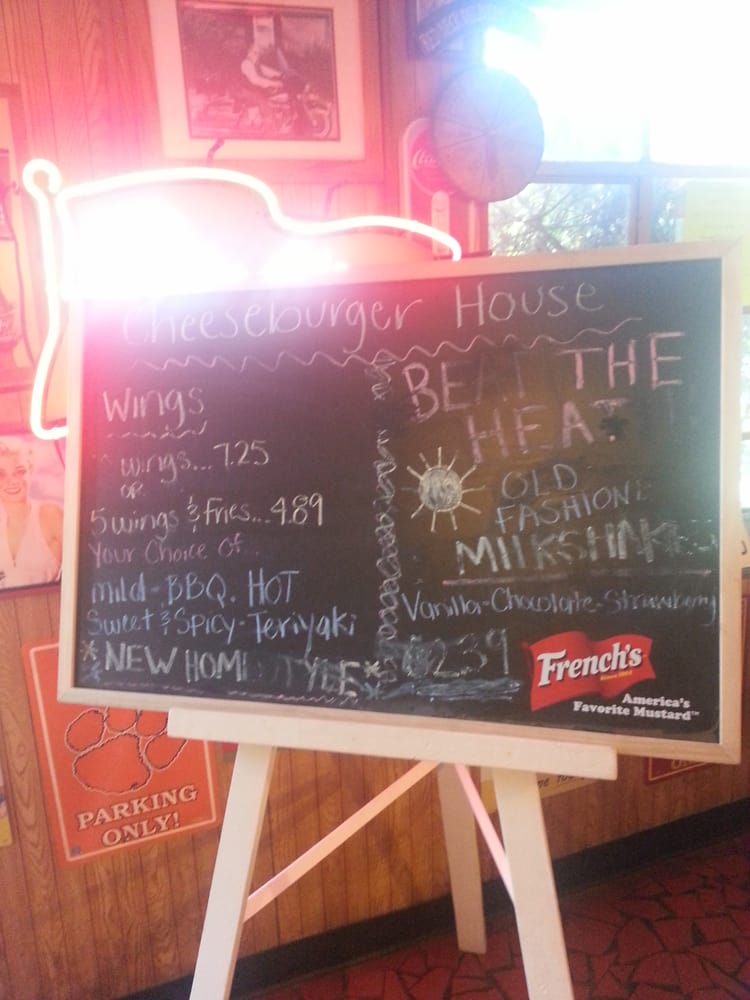 Coca
Cheeseburger House
Wings
wings... 7.25
or
5 wings & Fries... 4.89
Your Choice Of...
Mild - BBQ. HOT
Sweet & Spicy - Teriyaki
*NEW HOMESTYLE*
BEAT THE
HEAT
OLD
FASHION
MILKSHAKES
Vanilla-Chocolate-Strawberry
2.39
French's
Since 1904
America's
Favorite Mustard™
PARKING
ONLY!